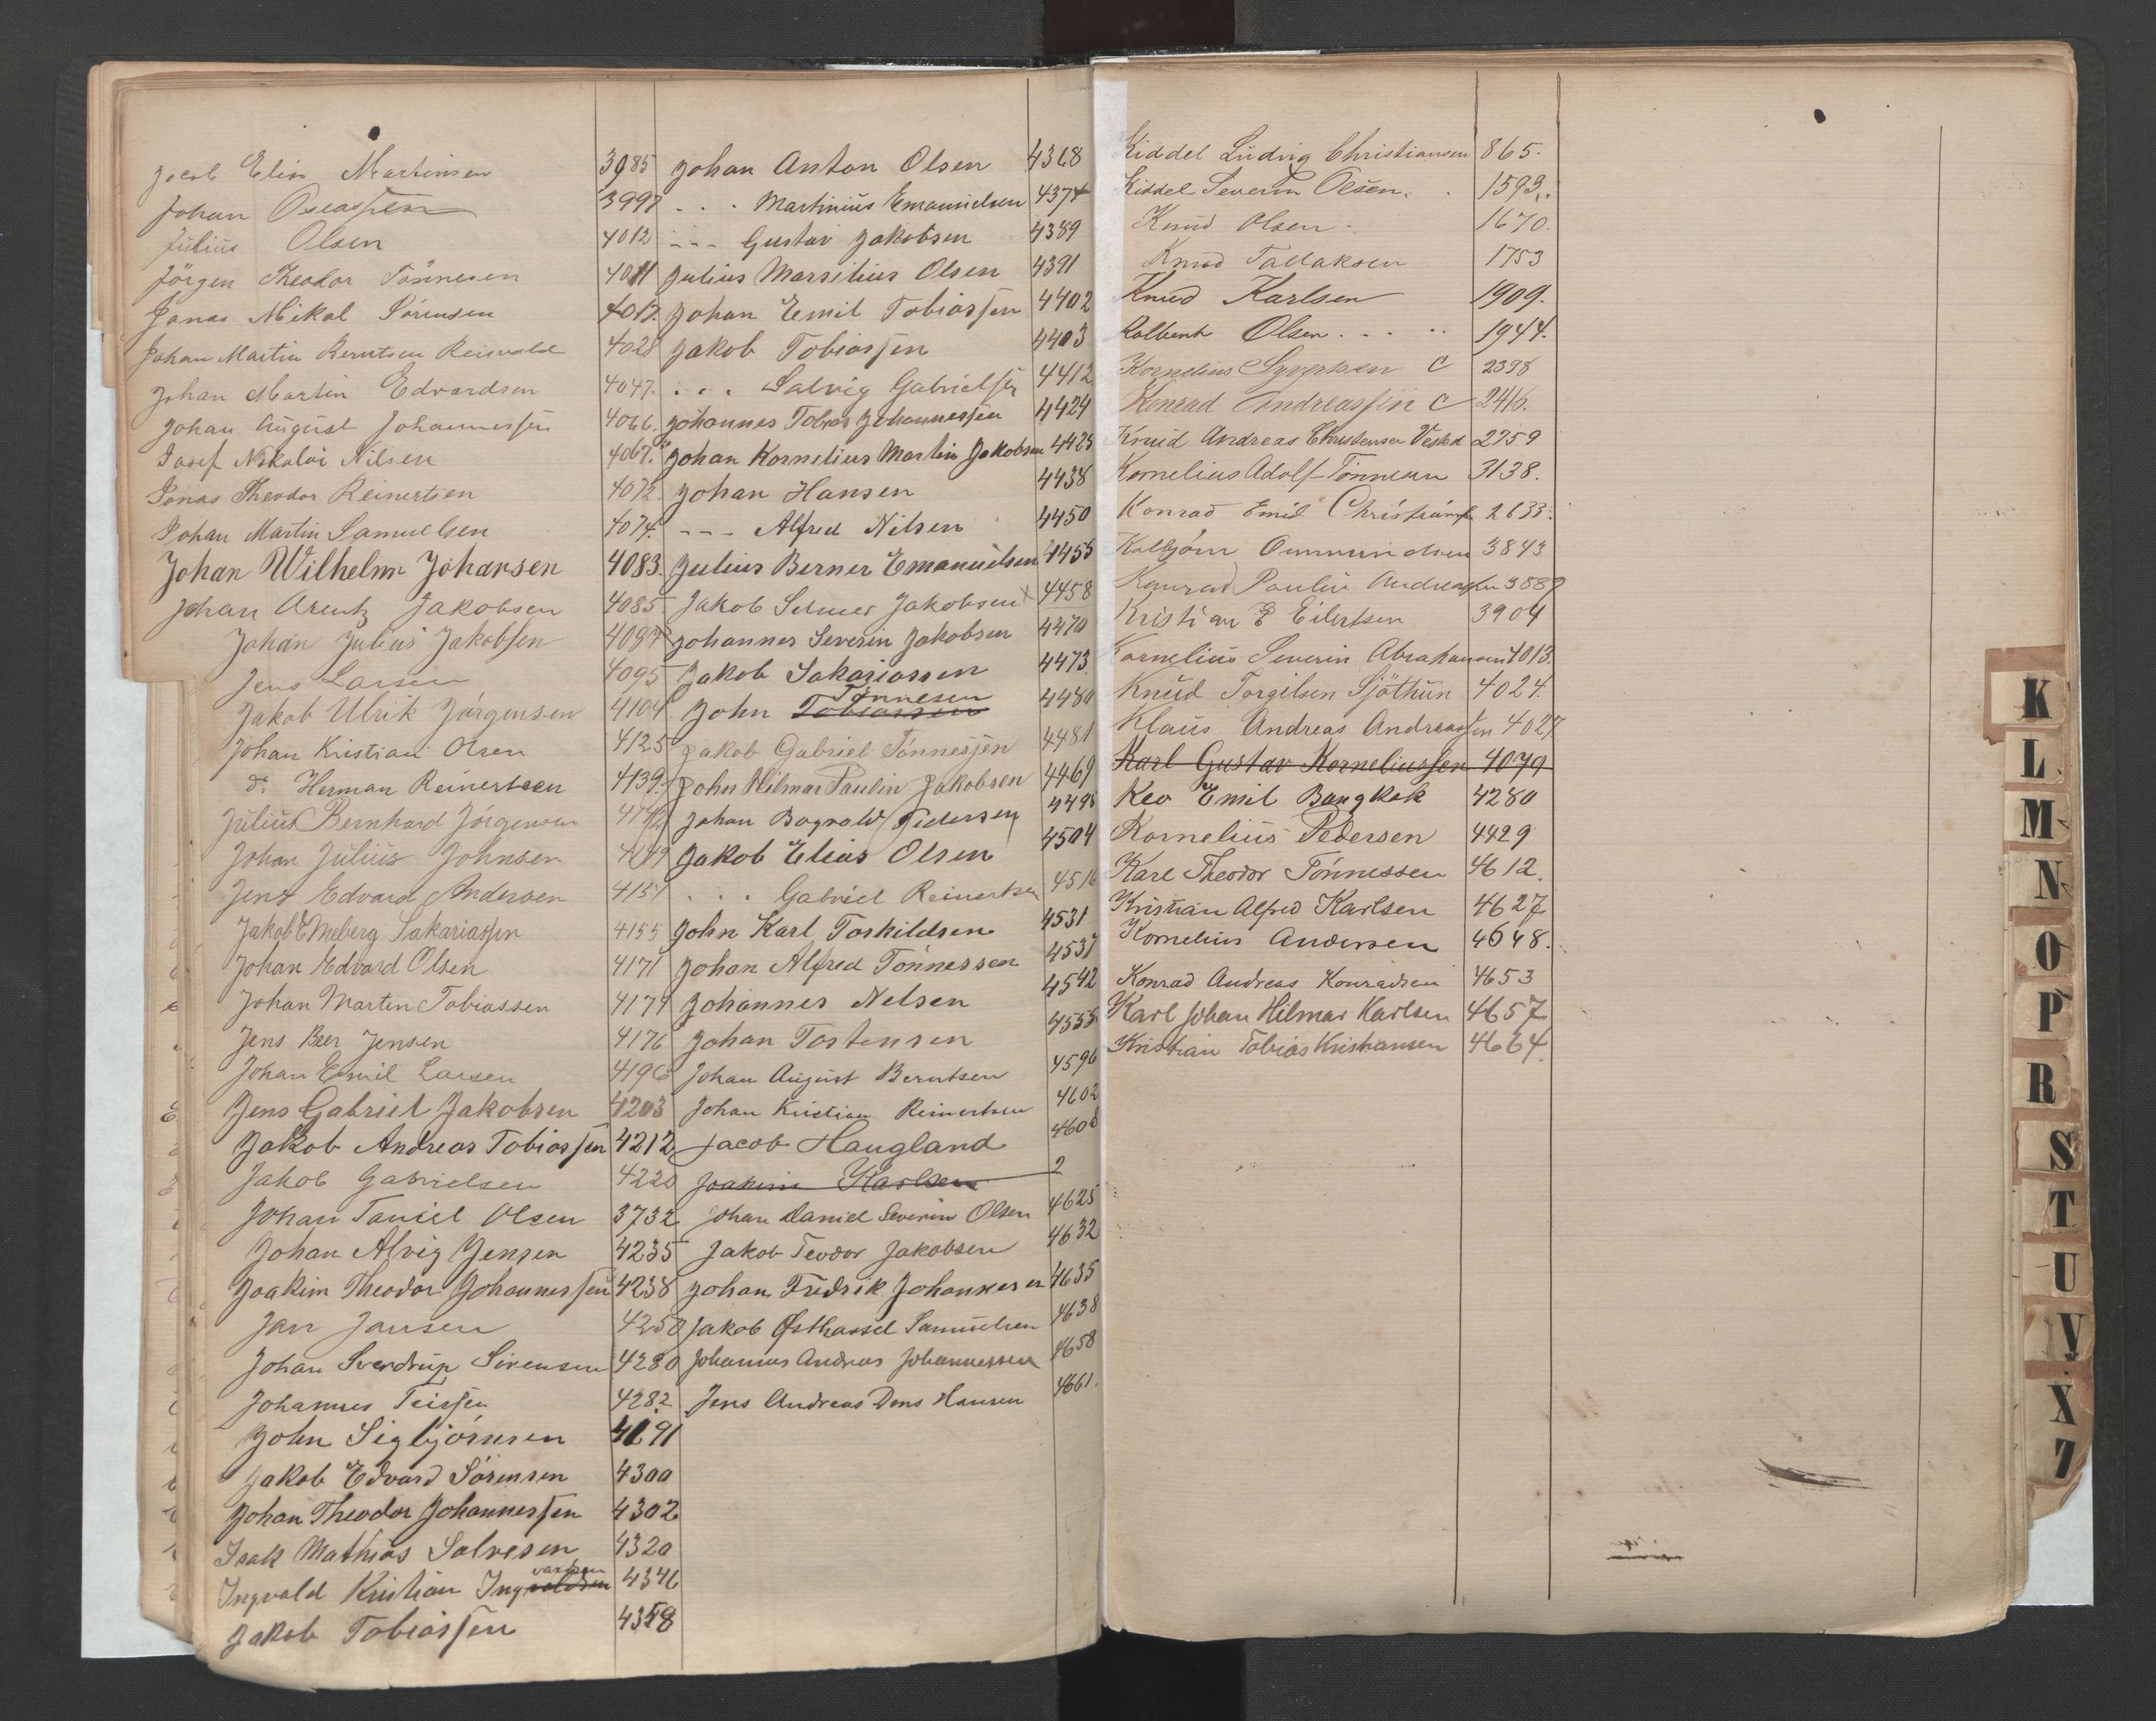 Jacob Elias Martinsen 3985
Johan Oseassen 3997
Julius Olsen 4012
Jörgen Theodor Tönnesen 4011
Jonas Mikal Sörensen 4017.
Johan Martin Berntsen Reisvold 4028
Johan Martin Edvardsen 4047.
Johan August Johannessen 4066.
Josef Nikolai Nilsen 4067.
Jonas Theodor Reinertsen 4072.
Johan Martin Samuelsen 4074.
Johan Wilhelm Johansen 4083.
Johan Arentz Jakobsen 4085
Johan Julius Jakobsen 4087
Jens Larsen 4095
Jakob Ulrik Jörgensen 4104
Johan Kristian Olsen 4125
do Herman Reinertsen 4139.
Julius Bernhard Jörgensen
Johan Julius Johnsen 4149
Jens Edvard Andersen 4151
Jakob Emberg Sakariassen 4155
Johan Edvard Olsen 4171
Johan Martin Tobiassen 4174
Jens Beer Jensen 4176
Johan Emil Larsen 4196
Jens Gabriel Jakobsen 4203
Jakob Andreas Tobiassen 4212
Jakob Gabrielsen 4220
Johan Taniel Olsen 3732
Johan Alvig Jensen 4235
Joakim Theodor Johannessen 4238
Jan Jansen 4250
Johan Sverdrup Sörensen 4280
Johannes Teissen 4282
John Sigbjörnsen 4291
Jakob Edvard Sörensen 4300
Johan Theodor Johannessen 4302
Isak Mathias Salvesen 4320
Ingvald Kristian Ingvaldsen varsen 4346
Jakob Tobiassen 4358
Johan Anton Olsen 4368
. . . Martinius Emanuelsen 4374
--- Gustav Jakobsen 4389
Julius Marsilius Olsen 4391
Johan Emil Tobiassen 4402
Jakob Tobiassen 4403
. . . Salvig Gabrielsen 4412
Johannes Tobias Johannessen 4424
Johan Kornelius Martin Jakobsen 4425
Johan Hansen 4438
--- Alfred Nilsen 4450
Julius Berner Emanuelsen 4455
Jakob Selmer Jakobsen 4458
Johannes Severin Jakobsen 4470
Jakob Sakariassen 4473
John Tobiassen Tönnesen 4480
Jakob Gabriel Tönnesjen 4481
John Hilmar Paulin Jakobsen 4469
Johan Bagvald Pedersen 4498
Jakob Elias Olsen 4504
. . . Gabriel Reinertsen 4516
John Karl Torkildsen 4531
Johan Alfred Tönnessen 4537
Johannes Nelsen 4542
Johan Tostensen 4555
Johan August Berntsen 4596
Johan Kristian Reinertsen 4602
Jacob Haugland 4608
Joakim Karlsen 2
Johan Daniel Severin Olsen 4625
Jakob Teodor Jakobsen 4632
Johan Fredrik Johannesen 4635
Jakob Østhassel Samuelsen 4638
Johannes Andreas Johannessen 4658
Jens Andreas Dons Hansen 4661.
Kiddel Ludvig Christiansen 865.
Kiddel Severin Olsen. . 1593.
Knud Olsen. 1670.
Knud Tallaksen 1753
Knud Karlsen 1909.
Kalbent Olsen . . . 1944.
Kornelius Syvertsen C 2398
Konrad Andreassen C 2416.
Knud Andreas Christensen Vestad 2759
Kornelius Adolf Tönnesen 3138.
Konrad Emil Christians 2633.
Kolbjörn Ommundsen 3843
Konrad Paulin Andreassen 3889
Kristian E Eilertsen 3904
Kornelius Severin Abrahamsen 4013.
Knud Torgilsen Sjöthun 4024.
Klaus Andreas Andreassen 4027
Karl Gustav Korneliussen 4079
Keo Emil Bangkok 4280
Kornelius Pedersen 4429
Karl Theodor Tönnessen 4612.
Kristian Alfred Karlsen 4627
Kornelius Andersen 4648.
Konrad Andreas Konradsen 4653
Karl Johan Hilmar Karlsen 4657
Kristian Tobias Kristiansen 4664.
K
L
M
N
O
P
R
S
T
U
V
X
Z